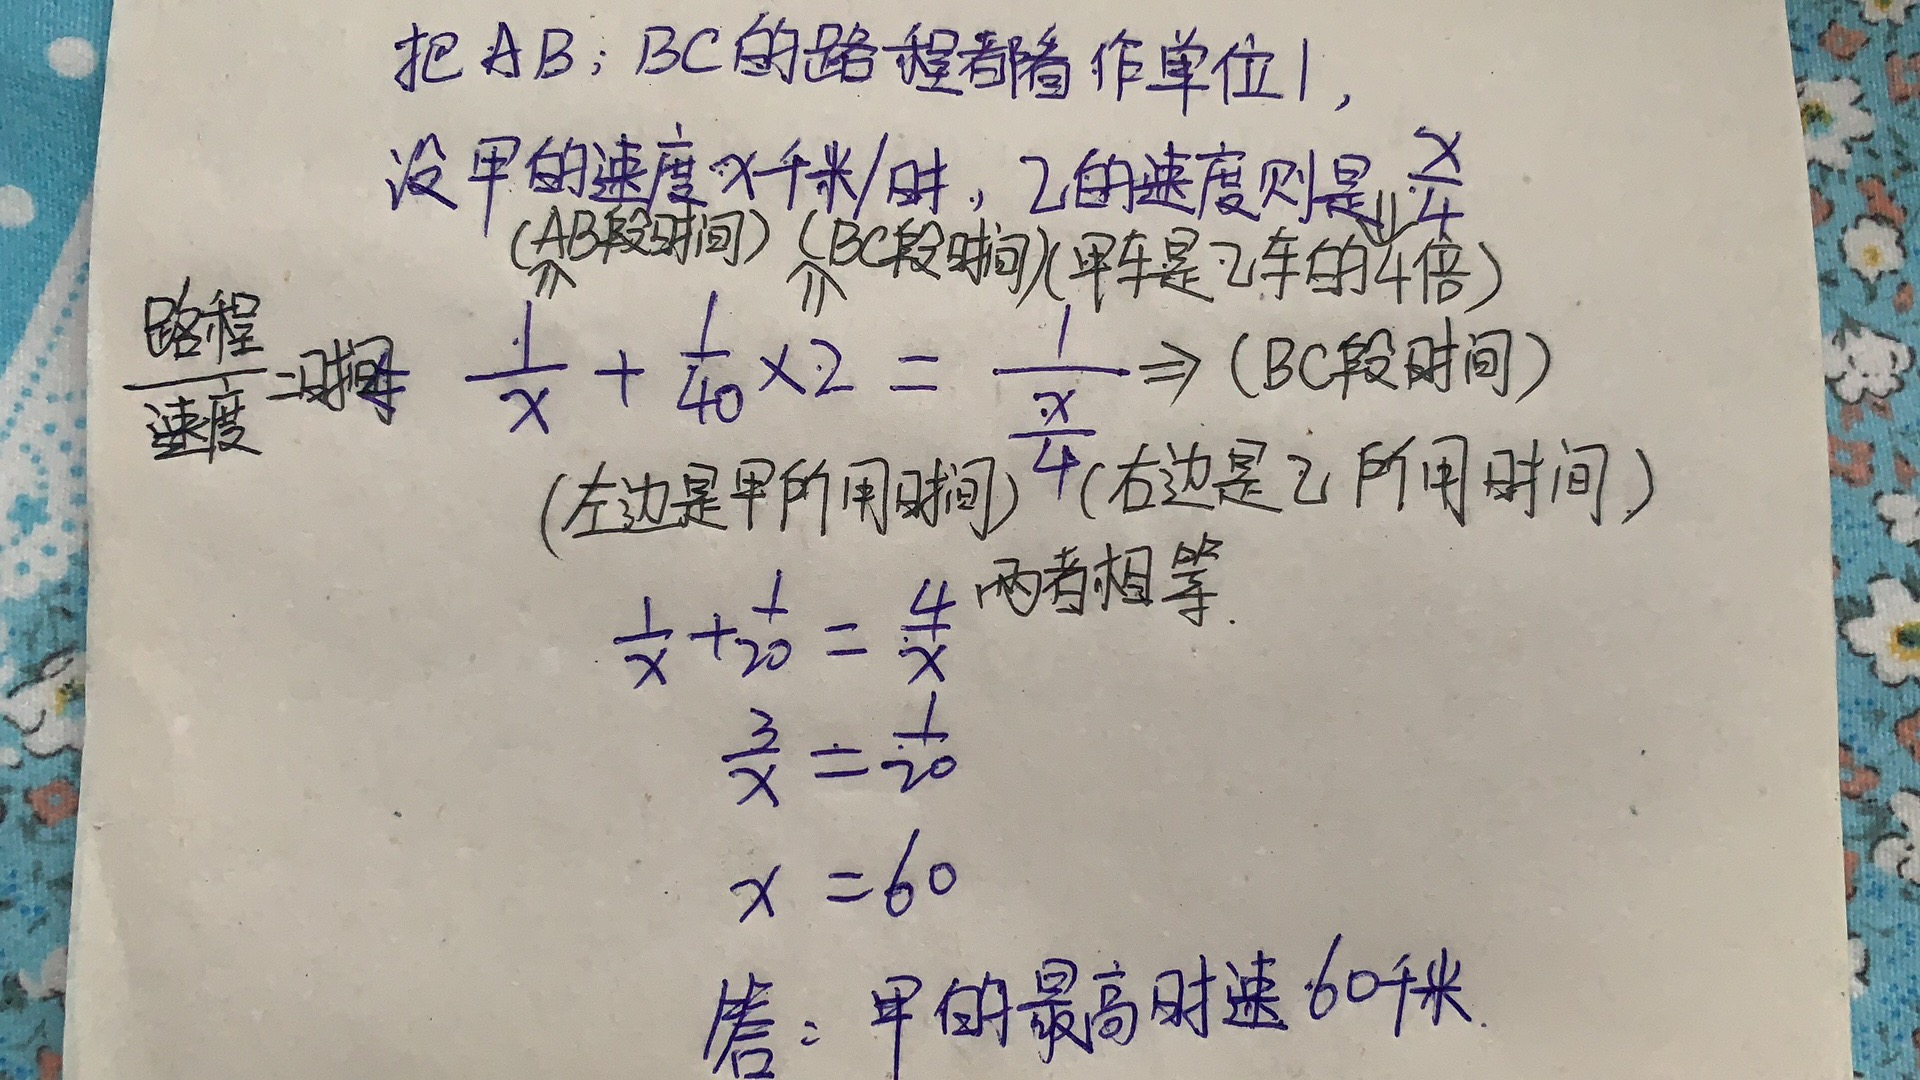 把AB;BC的路程都看作单位1,
设甲的速度x千米/时,乙的速度则是x/4
(AB段时间)(BC段时间)(甲车是乙车的4倍)
路程/速度=时间 1/x+1/40×2=1/(x/4)⇒(BC段时间)
(左边是甲所用时间)(右边是乙所用时间)
两者相等.
1/x+1/20=4/x
3/x=1/20
x=60
答:甲的最高时速60千米.